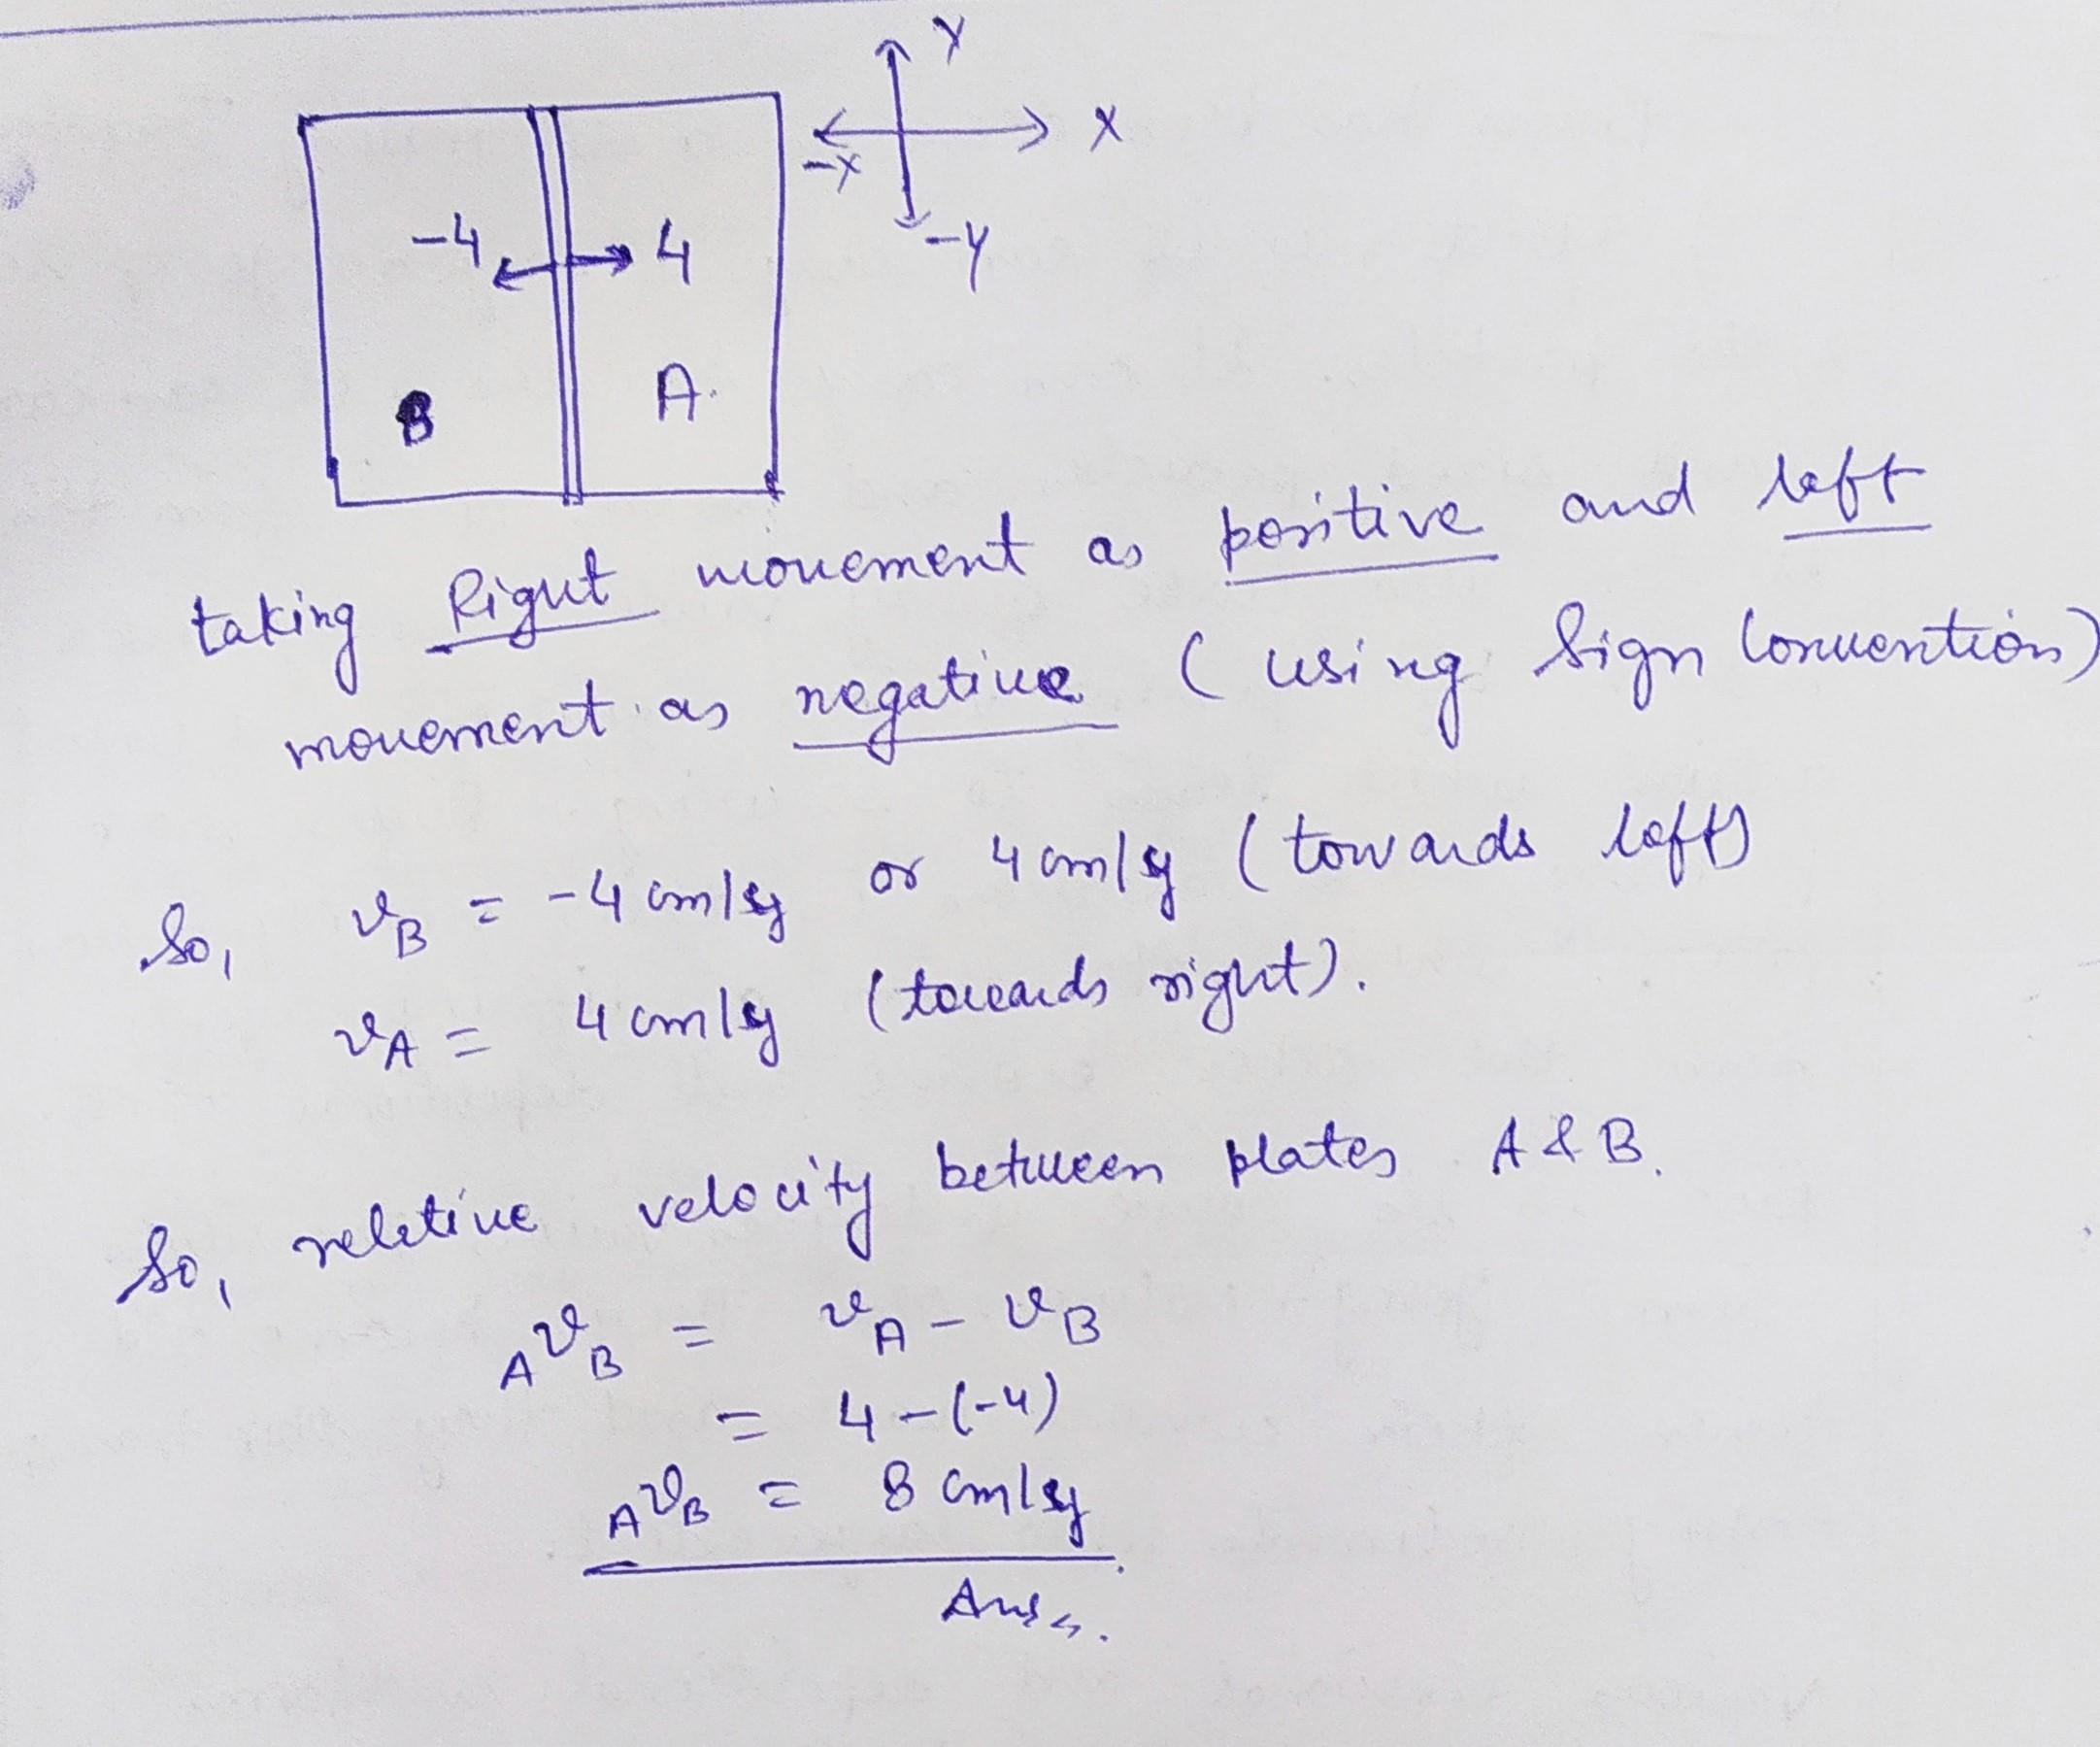 Y
X
-X
-Y
-4
4
B
A
taking Right movement as positive and left
movement as negative ( using Sign Convention)
So, vB = -4 cm/y or 4 cm/y (towards left)
vA = 4 cm/y (towards right).
So, reletive velocity between plates A & B.
AvB = vA - vB
= 4 - (-4)
AvB = 8 cm/y
Ans.